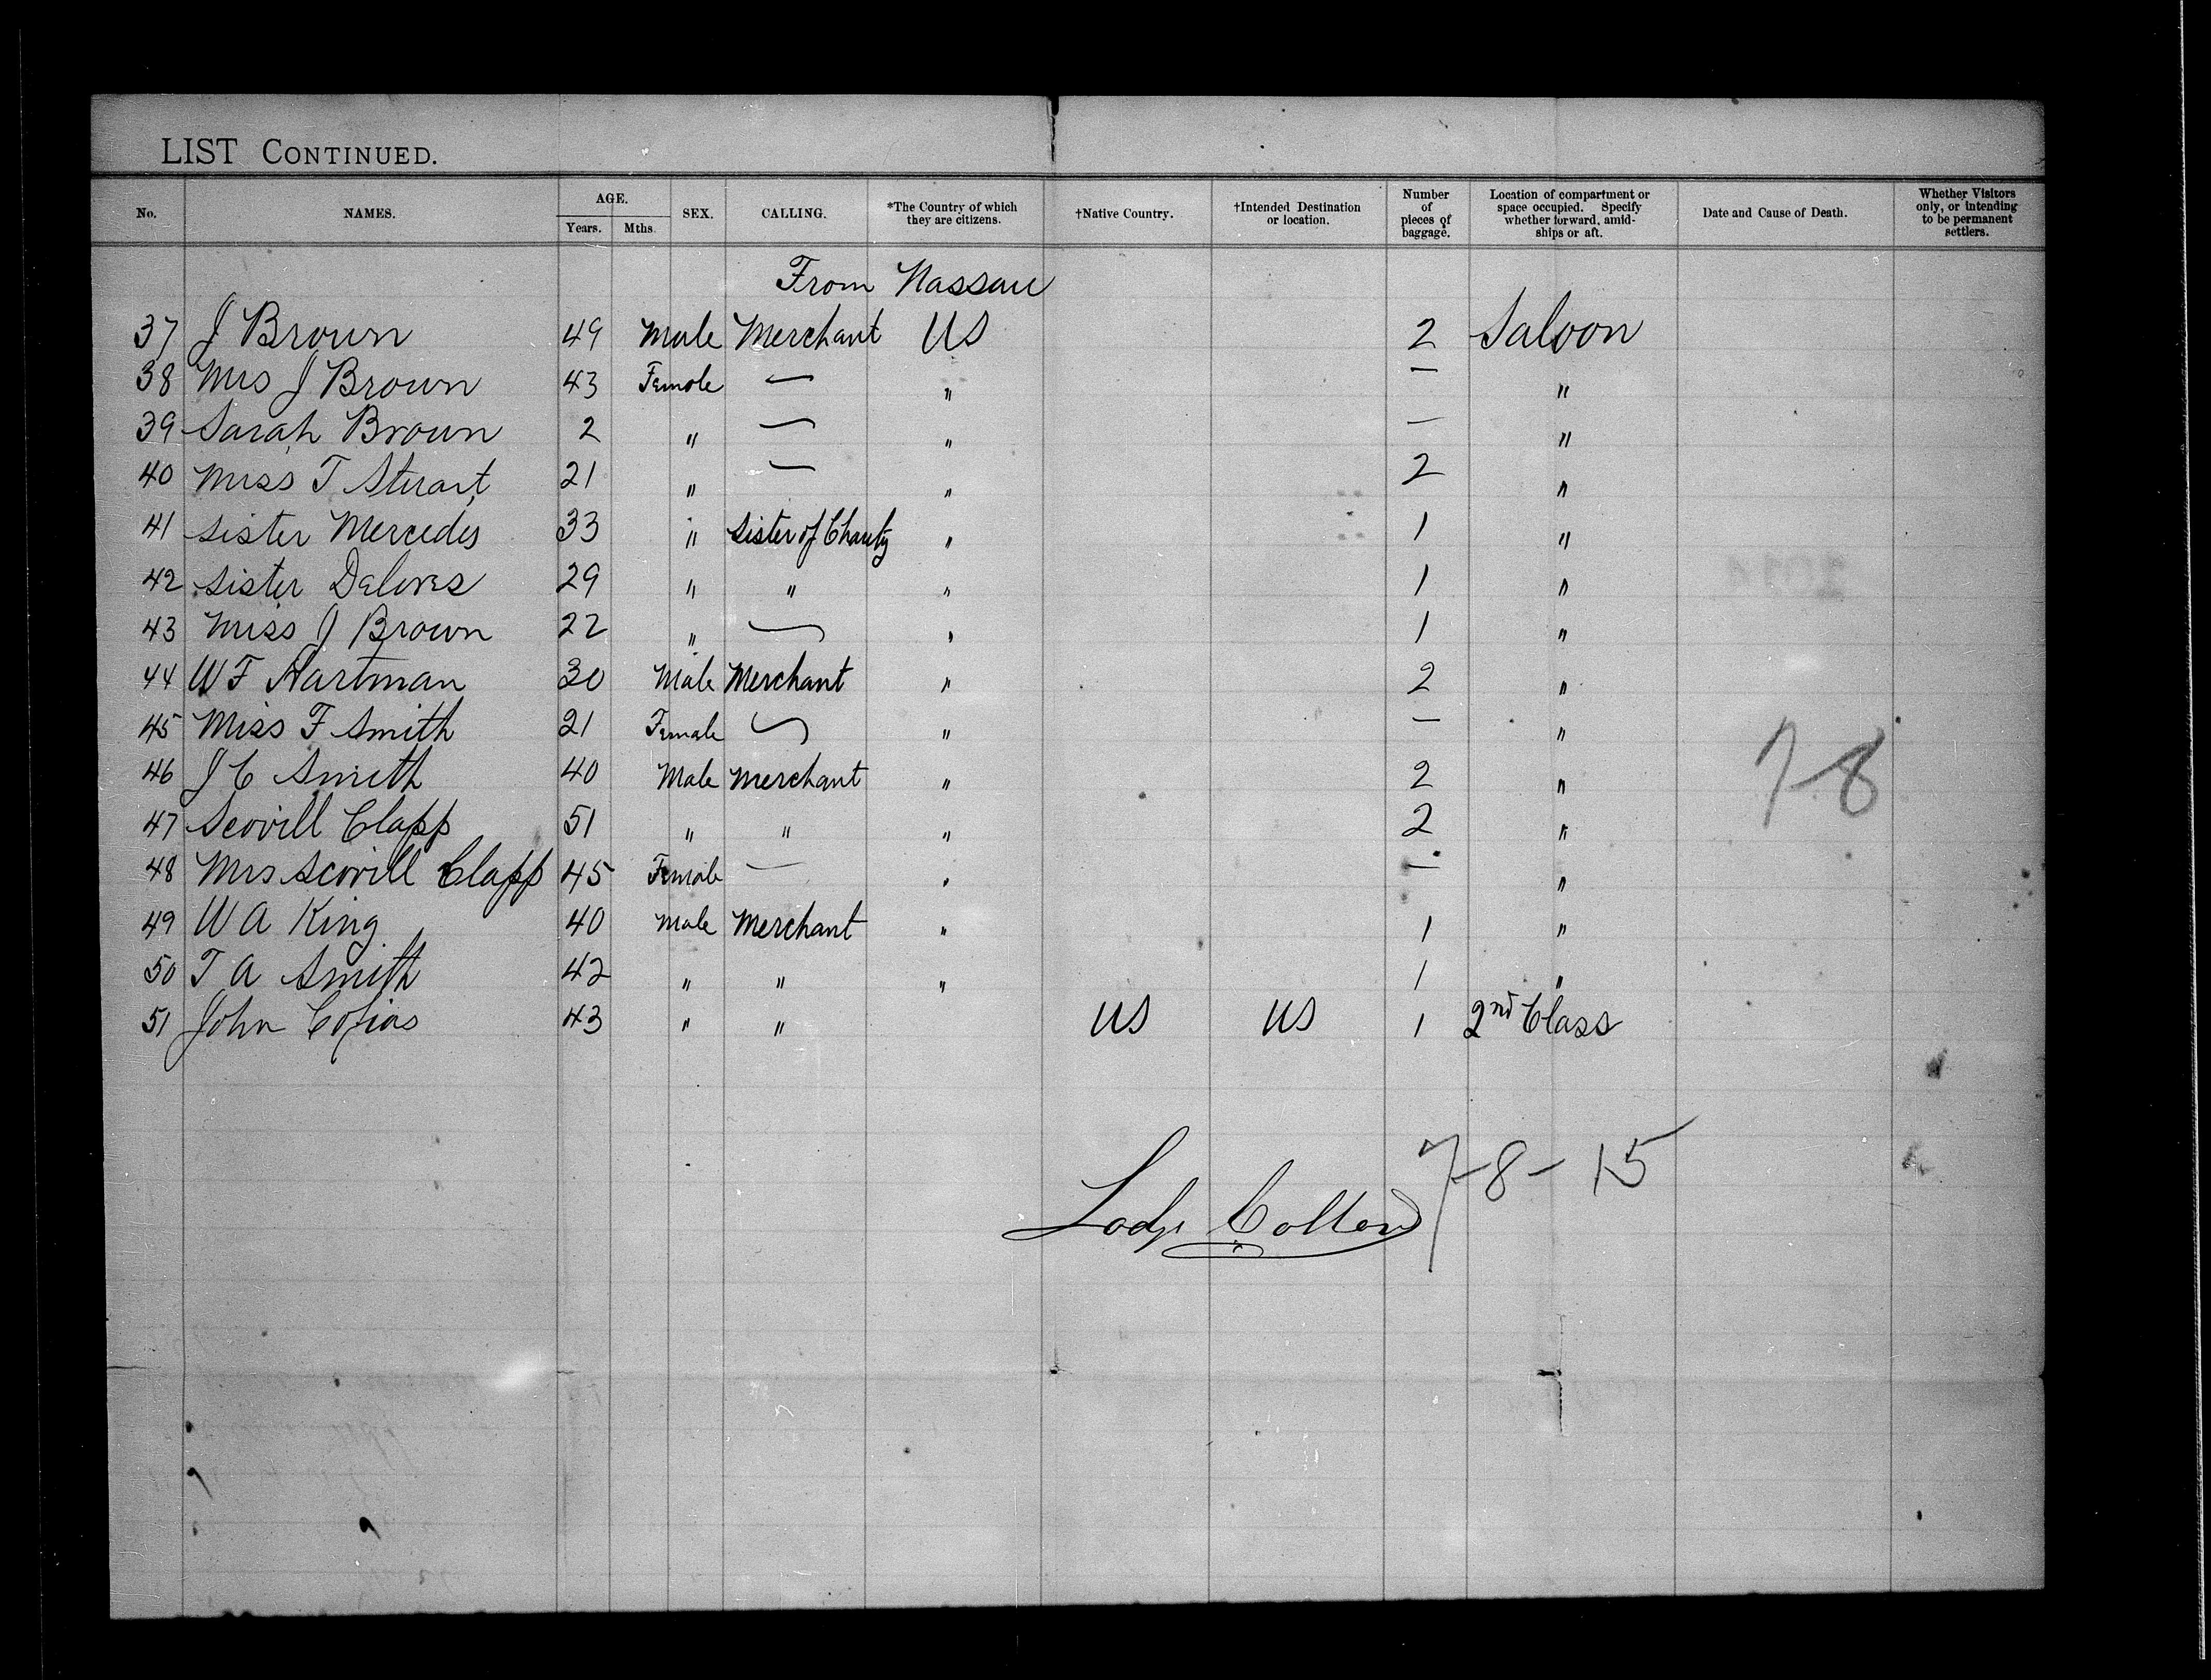 LIST CONTINUED.
No. NAMES. AGE. Years. Mths. SEX. CALLING. *The Country of which they are citizens. †Native Country. †Intended Destination or location. Number of pieces of baggage. Location of compartment or space occupied. Specify whether forward, amidships or aft. Date and Cause of Death. Whether Visitors only, or intending to be permanent settlers.
From Nassau
37 J Brown 49 Male Merchant US 2 Saloon
38 Mrs J Brown 43 Female — " — "
39 Sarah Brown 2 " — " — "
40 Miss T Sturart 21 " — " 2 "
41 Sister Mercedes 33 " Sister of Charity " 1 "
42 Sister Delores 29 " " " 1 "
43 Miss J Brown 22 " — " 1 "
44 W F Hartman 30 Male Merchant " 2 "
45 Miss F Smith 21 Female — " — "
46 J C Smith 40 Male Merchant " 2 "
7-8
47 Scovill Clapp 51 " " " 2 "
48 Mrs Scovill Clapp 45 Female — " — "
49 W A King 40 Male Merchant " 1 "
50 T A Smith 42 " " " 1 "
51 John Cofias 43 " " US US 1 2nd Class
7-8-15